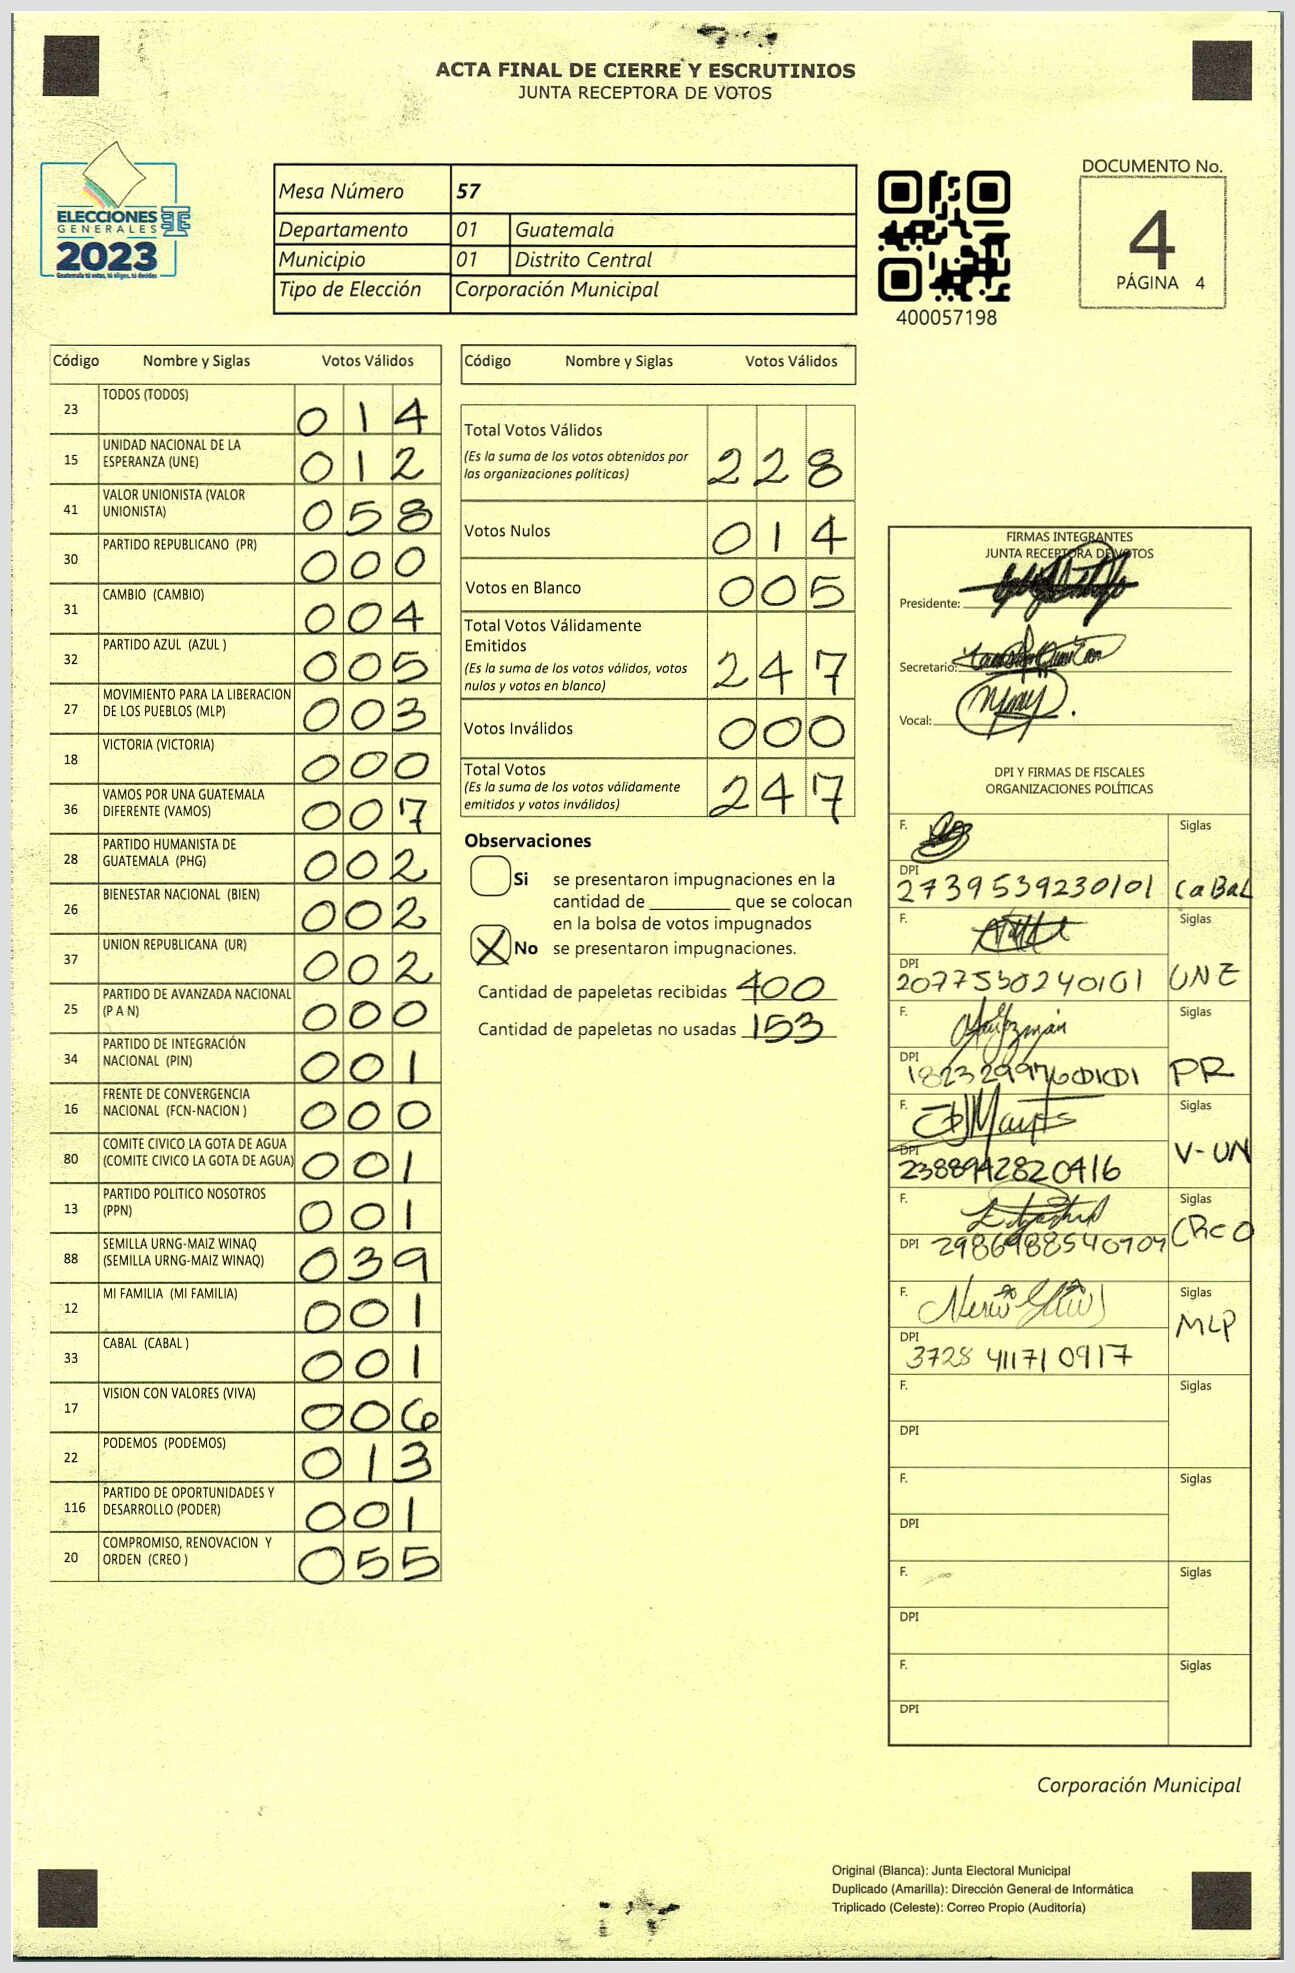 ACTA FINAL DE CIERRE Y ESCRUTINIOS
JUNTA RECEPTORA DE VOTOS
ELECCIONES
GENERALES
2023
Guatemala tú votas, tú eliges, tú decides
Mesa Número 57
Departamento 01 Guatemala
Municipio 01 Distrito Central
Tipo de Elección Corporación Municipal
400057198
DOCUMENTO No.
4
PÁGINA 4
Código Nombre y Siglas Votos Válidos
23 TODOS (TODOS) 014
15 UNIDAD NACIONAL DE LA
ESPERANZA (UNE) 012
41 VALOR UNIONISTA (VALOR
UNIONISTA) 058
30 PARTIDO REPUBLICANO (PR) 000
31 CAMBIO (CAMBIO) 004
32 PARTIDO AZUL (AZUL ) 005
27 MOVIMIENTO PARA LA LIBERACION
DE LOS PUEBLOS (MLP) 003
18 VICTORIA (VICTORIA) 000
36 VAMOS POR UNA GUATEMALA
DIFERENTE (VAMOS) 007
28 PARTIDO HUMANISTA DE
GUATEMALA (PHG) 002
26 BIENESTAR NACIONAL (BIEN) 002
37 UNION REPUBLICANA (UR) 002
25 PARTIDO DE AVANZADA NACIONAL
(P A N) 000
34 PARTIDO DE INTEGRACIÓN
NACIONAL (PIN) 001
16 FRENTE DE CONVERGENCIA
NACIONAL (FCN-NACION ) 000
80 COMITE CIVICO LA GOTA DE AGUA
(COMITE CIVICO LA GOTA DE AGUA) 001
13 PARTIDO POLITICO NOSOTROS
(PPN) 001
88 SEMILLA URNG-MAIZ WINAQ
(SEMILLA URNG-MAIZ WINAQ) 039
12 MI FAMILIA (MI FAMILIA) 001
33 CABAL (CABAL ) 001
17 VISION CON VALORES (VIVA) 006
22 PODEMOS (PODEMOS) 013
116 PARTIDO DE OPORTUNIDADES Y
DESARROLLO (PODER) 001
20 COMPROMISO, RENOVACION Y
ORDEN (CREO ) 055
Código Nombre y Siglas Votos Válidos
Total Votos Válidos 228
(Es la suma de los votos obtenidos por
las organizaciones políticas)
Votos Nulos 014
Votos en Blanco 005
Total Votos Válidamente
Emitidos 247
(Es la suma de los votos válidos, votos
nulos y votos en blanco)
Votos Inválidos 000
Total Votos 247
(Es la suma de los votos válidamente
emitidos y votos inválidos)
Observaciones
Si se presentaron impugnaciones en la
cantidad de ________ que se colocan
en la bolsa de votos impugnados
X No se presentaron impugnaciones.
Cantidad de papeletas recibidas 400
Cantidad de papeletas no usadas 153
FIRMAS INTEGRANTES
JUNTA RECEPTORA DE VOTOS
Presidente:
Secretario:
Vocal:
DPI Y FIRMAS DE FISCALES
ORGANIZACIONES POLÍTICAS
F. Siglas
DPI 2739539230101 CaBaL
F. Siglas
DPI 2077530240101 UNE
F. Siglas
DPI PR
F. Siglas
DPI 2388942820416 V-UN
F. Siglas
DPI 2986988540704 CReO
F. Siglas
DPI 3728 411710917 MLP
F. Siglas
DPI
F. Siglas
DPI
F. Siglas
DPI
F. Siglas
DPI
Corporación Municipal
Original (Blanca): Junta Electoral Municipal
Duplicado (Amarilla): Dirección General de Informática
Triplicado (Celeste): Correo Propio (Auditoría)